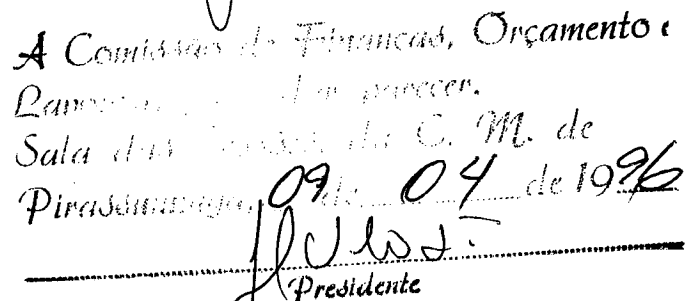 A Comissão de Finanças, Orçamento e
dar parecer.
Sala das Sessões da C. M. de
Pirassununga, 09 de 04 de 1996
Presidente